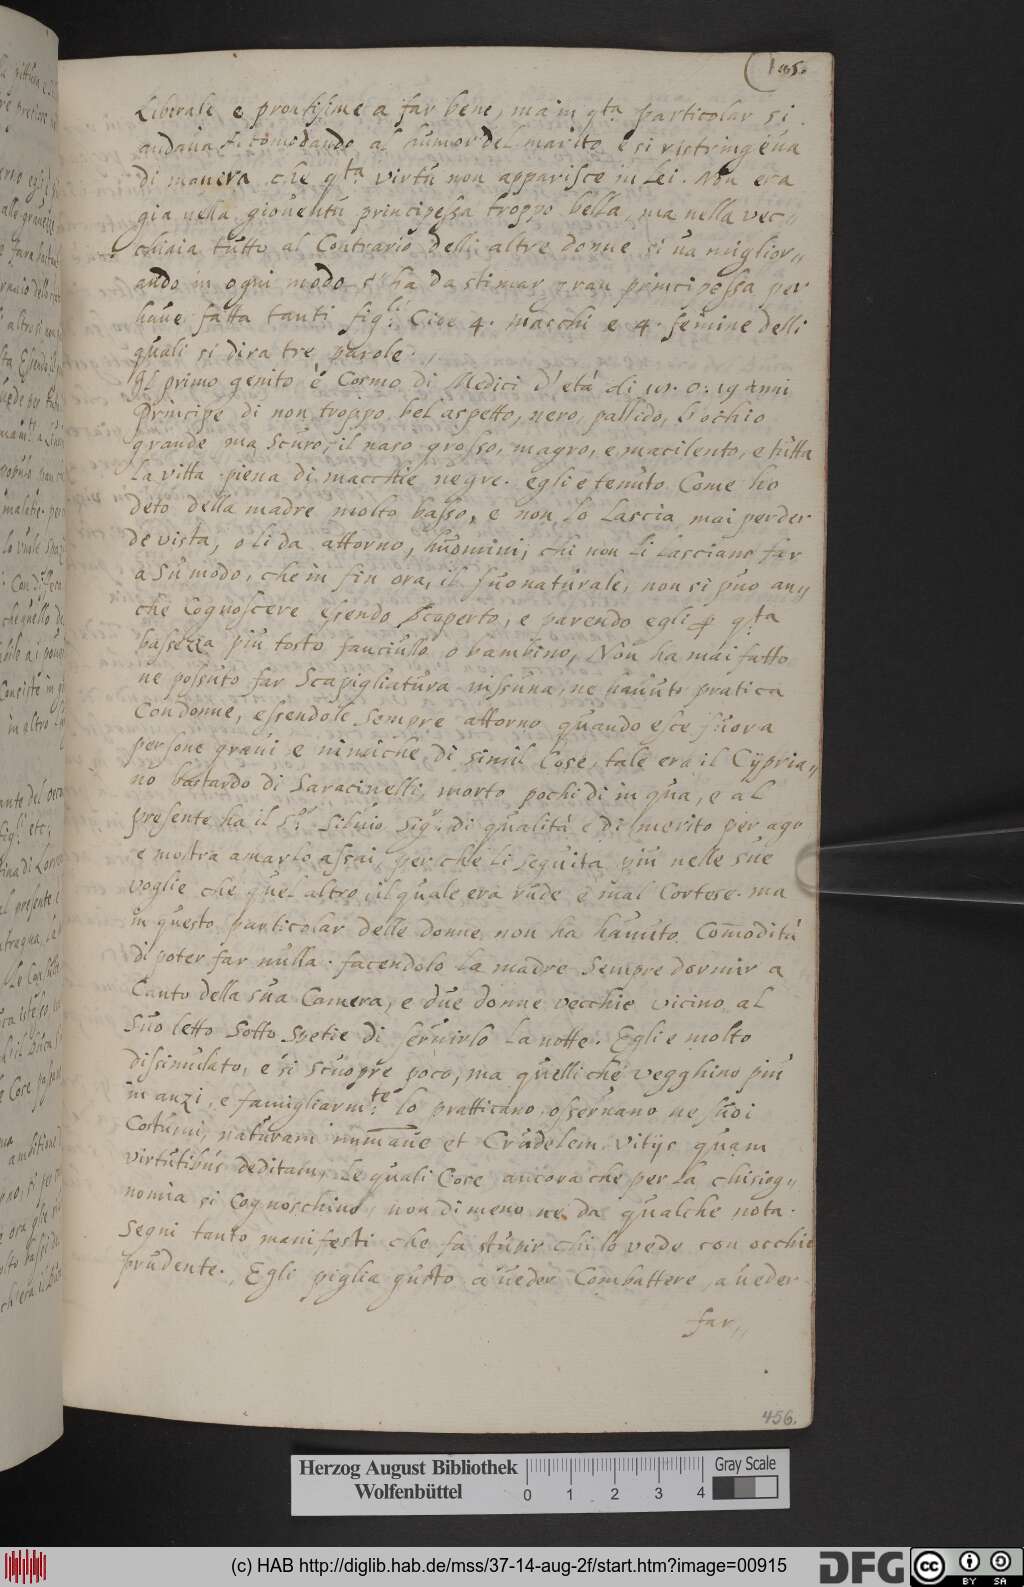 185.
Liberale e prontissime a far bene, ma in q.ta particolar si
andava accomodando al humor del marito e si ristringeva
di manera che q.ta virtù non apparisce in Lei. Non era
gia nella gioventù principessa troppo bella, ma nella vec„
chiaia tutto al Contrario delli altre donne si va miglior„
ando in ogni modo s'ha da stimar gran principessa per
have fatta tanti figli Cioe 4. maschi e 4. femine delli
quali si dira tre parole.
Il primo genito è Cosmo di Medici d'età di ur. o: 19 Anni
Principe di non troppo bel aspetto, nero, pallido, l'ochio
grande ma scuro, il naso grosso, magro, e macilento, e tutta
la vitta piena di macchie negre. egli e tenuto Come ho
deto della madre molto basso, e non lo Lascia mai perder
de vista, o li da attorno, huomini, chi non li lasciano far
a su modo, che in fin ora, il suo naturale, non si puo an„
che Cognoscere essendo scoperto, e parendo egli p q.ta
bassezza più tosto fanciullo o bambino, Non ha mai fatto
ne possuto far Scapigliatura nissuna, ne havuto pratica
Con donne, essendole sempre attorno quando esce fuora
persone gravi e nimiche di simil Cose, tale era il Cypria„
no bastardo di Saracinelli, morto pochi di in qua, e al
presente ha il S.r Silvio Sig.r di qualità e di merito per ago
e mostra amarlo assai, perche li seguita più nelle sue
voglie che quel altro, il quale era rude e mal Cortese. ma
in questo particolar delle donne non ha havuto Comodità
di poter far nulla. facendolo La madre Sempre dormir a
Canto della sua Camera, e due donne vecchie vicino al
suo letto Sotto Spetie di servirlo La notte. Egli e molto
dissimulato, e si scuopre poco, ma quelli che vegghino più
in anzi, e famigliarm.te lo pratticano osservano ne suoi
Costumi, naturam inmane et Crudelem, vitijs quam
virtutibus deditam, Le quali Cose ancora che per La chisiog„
nomia si Cognoschino, non di meno ne da qualche nota.
Segni tanto manifesti che fa stupir chi lo vede con occhio
prudente. Egli piglia gusto a veder Combattere, a veder
far„
456.
Herzog August Bibliothek
Wolfenbüttel
0 1 2 3 4
Gray Scale
(c) HAB http://diglib.hab.de/mss/37-14-aug-2f/start.htm?image=00915
DFG
cc BY SA